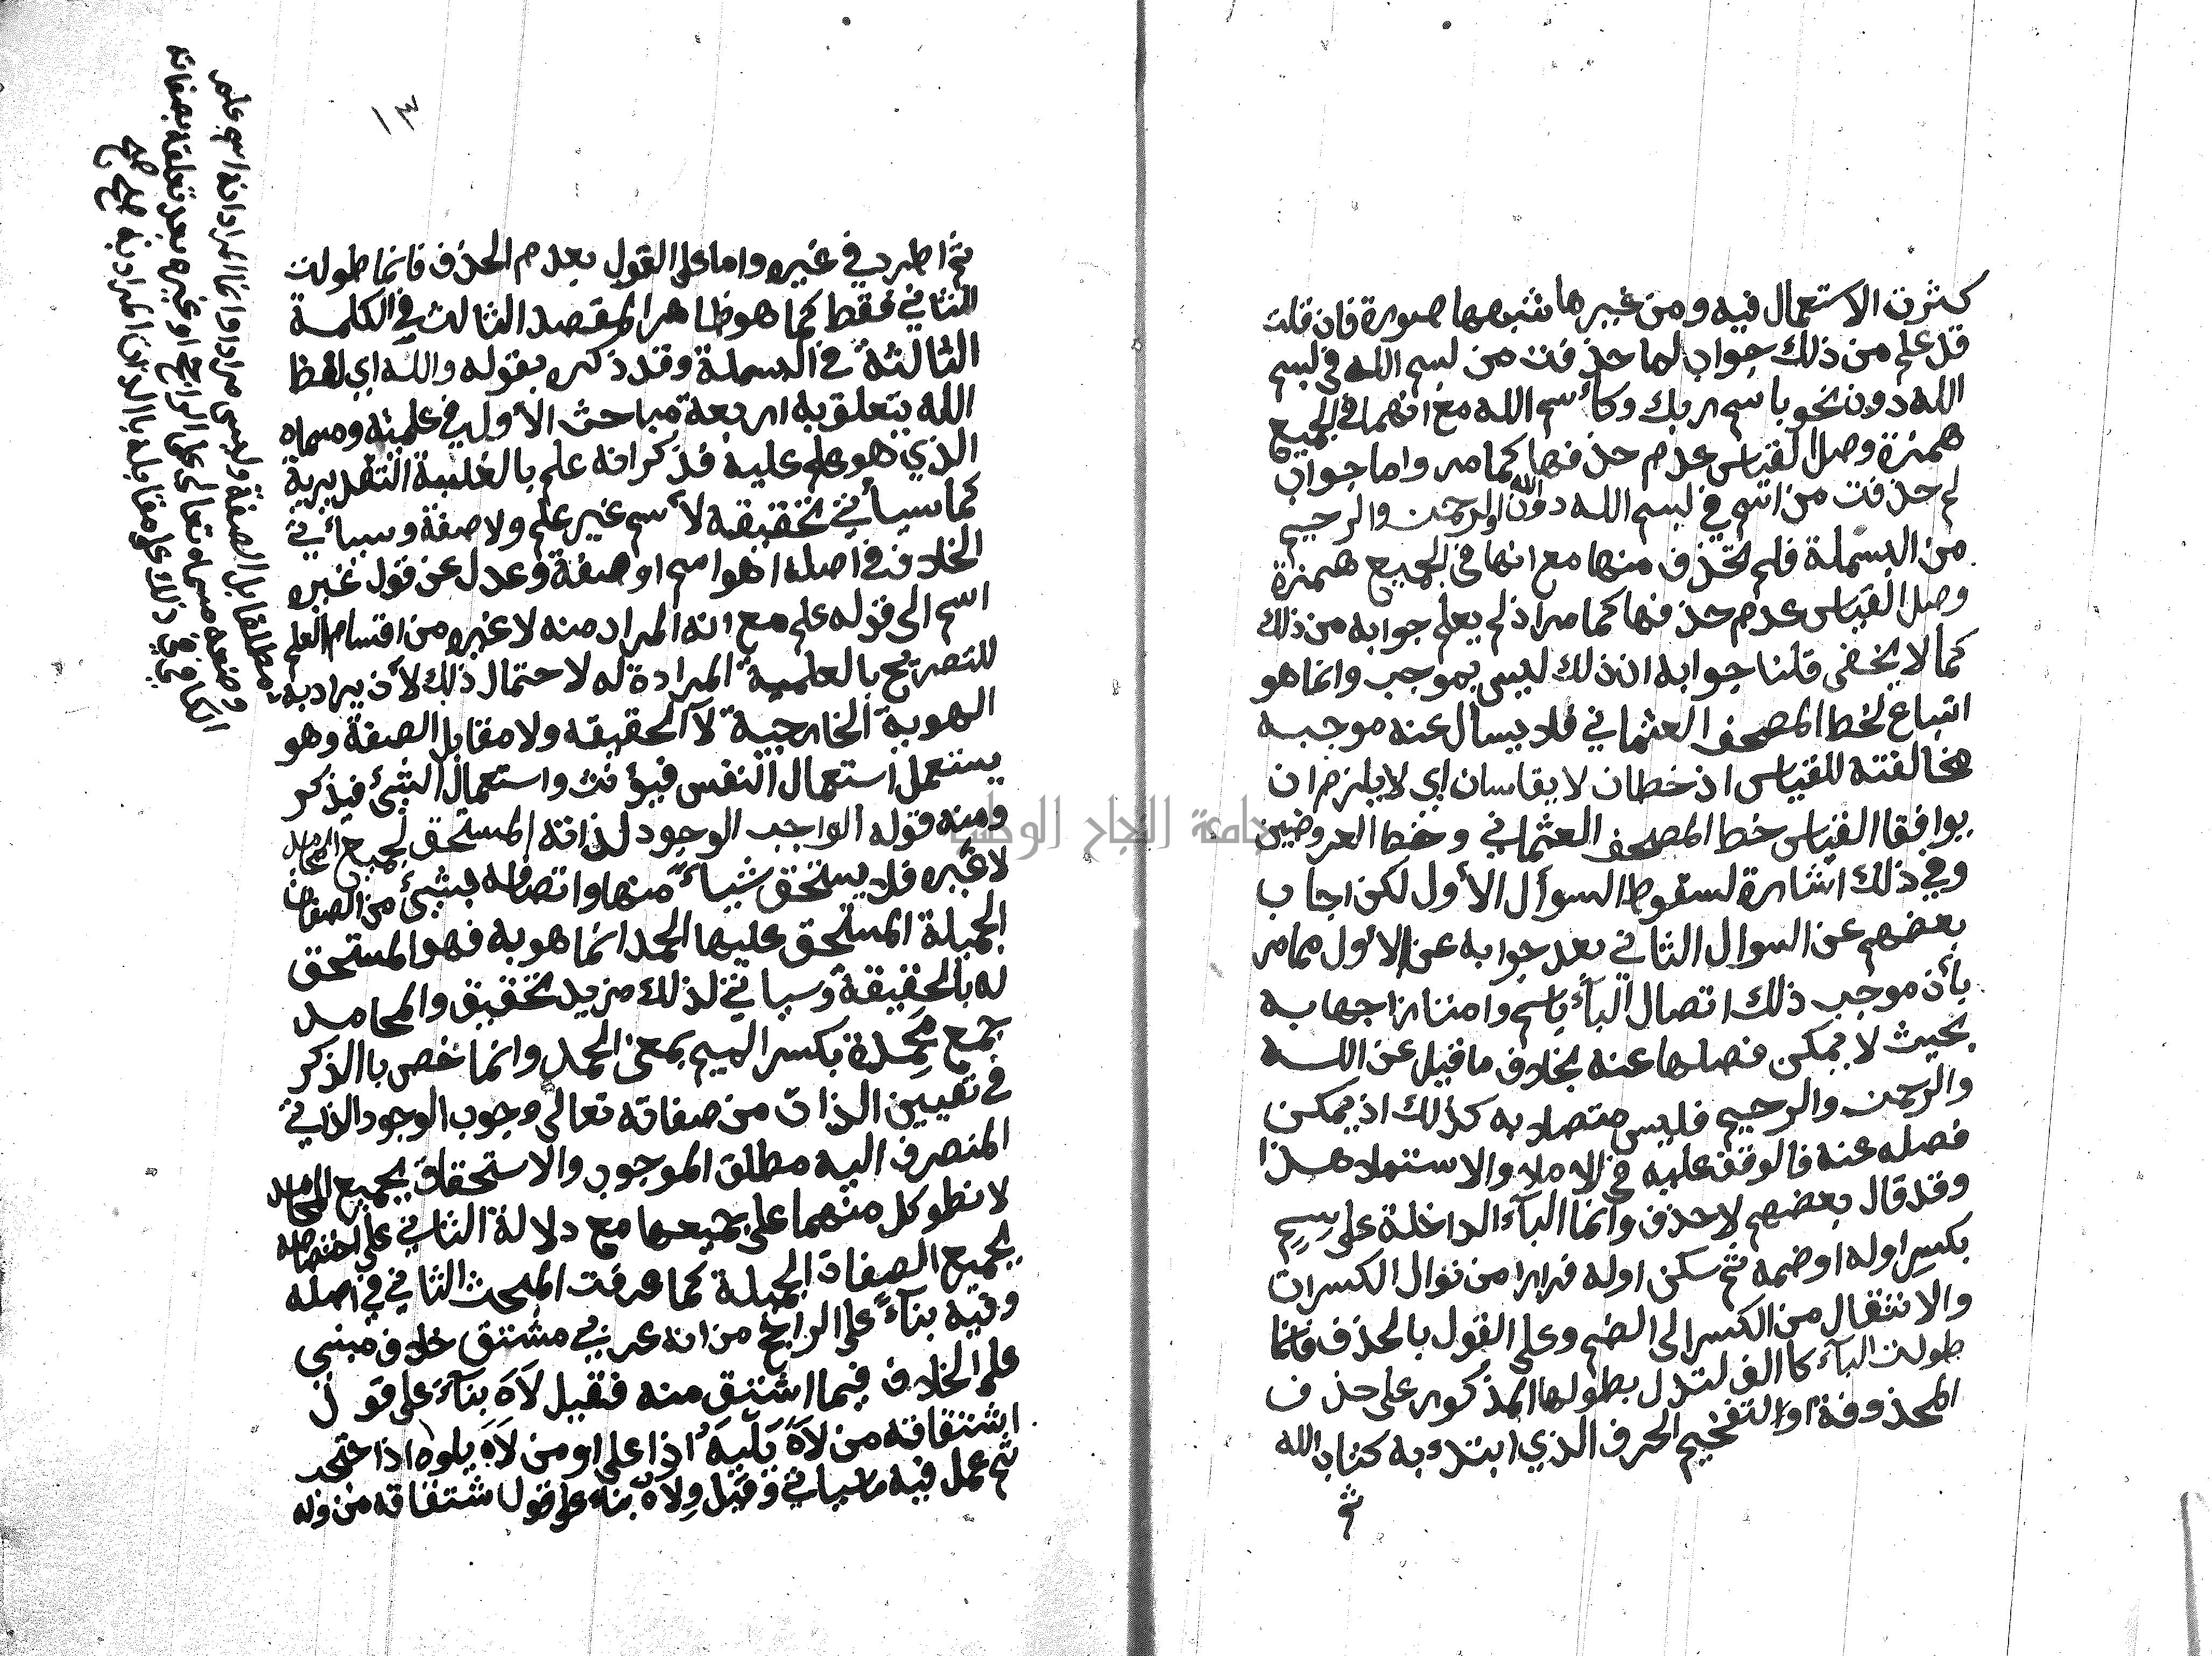 كثرت الاستعمال فيه ومن غيرها تشبهها صورة فان قلت
قد علم من ذلك جواب لما حذفت من لبسم الله في لبسم
الله دون نحو باسم ربك وكأسم الله مع انهما في الجميع
همزة وصل القياس عدم حذفها كما مر واما جواب
لم حذفت من اسم في لبسم الله دون الله والرحمن والرحيم
من البسملة فلم تحذف منها مع انها في الجميع همزة
وصل القياس عدم حذفها كما مر اذ لم يعلم جوابه من ذلك
كما لا يخفى قلنا جوابه ان ذلك ليس بموجب وانما هو
اتباع لخط المصحف العثماني فلا يسأل عنه موجبه
مخالفته للقياس اذ خطان لا يقاسان اي لا يلزم ان
يوافقا القياس خط المصحف العثماني وخط العروضين
وفي ذلك اشارة لسقوط السوأل الأول لكن اجاب
بعضهم عن السوال الثاني بعد جوابه عن الاول مما مر
بأن موجب ذلك اتصال البأ باسم وامتزاجها به
بحيث لا يمكن فصلها عنه بخلاف ما قبل عن الله
والرحمن والرحيم فليس متصلا به كذلك اذ يمكن
فصله عنه فالوقف عليه في الاملا والاستملا هذا
وقد قال بعضهم لاحذف وانما البآء الداخلة على سِمِ
بكسر اوله او ضمه ثم سكن اوله فرارا من توال الكسرات
والانتقال من الكسر الى الضم وعلى القول بالحذف فانما
طولت البآء كاالف لتدل بطولها المذكور على حذف
المحذوفة او التفخيم الحرف الذي ابتدء به كتاب الله
ثم
١٣
ثم اطرد في غيره واما على القول بعدم الحذف فانما طولت
للثاني فقط كما هو ظاهر المقصد الثالث في الكلمة
الثالثة في البسملة وقد ذكره بقوله والله اي لفظ
الله يتعلق به اربعة مباحث الأول في علميته ومسماه
الذي هو علم عليه فذكر انه علم بالغلبة التقديرية
كما سيأتي تحقيقه لأسم غير علم ولا صفة وسيأتي
الخلاف في اصله اهو اسم او صفة وعدل عن قول غيره
اسم الى قوله علم مع انه المراد منه لا غيره من اقسام العلم
للتصريح بالعلمية المرادة له لاحتمال ذلك لأن يراد به
الهوية الخارجية لا الحقيقه ولا مقابل الصفة وهو
يستعمل استعمال النفس فيؤنث واستعمال الشئ فيذكر
ومنه قوله الواجب الوجود لذاته المستحق لجميع المحامد
لا غيره فلا يستحق شيأ منها واتصافه بشئ من الصفات
الجميلة المستحق عليها الحمد انما هو به فهو المستحق
له بالحقيقة وسياتي لذلك مزيد تحقيق والمحامد
جمع مَحمِدة بكسر الميم بمعنى الحمد وانما خص باالذكر
في تعيين الذات من صفاته تعالى وجوب الوجود الذاتي
المنصرف اليه مطلق الموجود والاستحقاق لجميع المحامد
لانطو كل منهما على جميعها مع دلالة الثاني على اختصاصه
بجميع الصفات الجميلة كما عرفت المبحث الثاني في اصله
وفيه بناءً على الراجح من انه عربي مشتق خلاف مبني
على الخلاف فيما اشتق منه فقيل لاَهَ بنآءً على قول
اشتقاقه من لاَهَ يَلِيهُ اذا علا او من لاَهَ يلوه اذا احتجب
ثم عمل فيه ما سياتي وقيل ولاه بناء على قول اشتقاقه من وله
مطلقا بل الصفة وليس مرادا وانما المراد انه اسم علم
وضعه مسماه تعالى على الراجح او غيره بعد تعلقه بصفاته
الكافي في ذلك علم مقابله بالذات المراد به صح صح